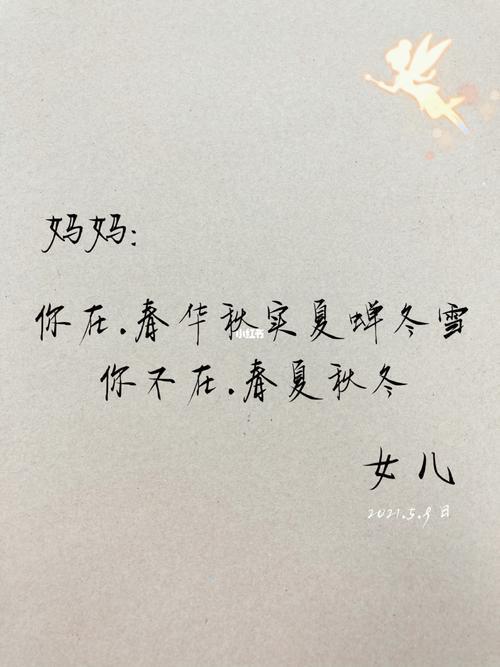 妈妈:
你在.春华秋实夏蝉冬雪
小红书
你不在.春夏秋冬
女儿
2021.5.9日